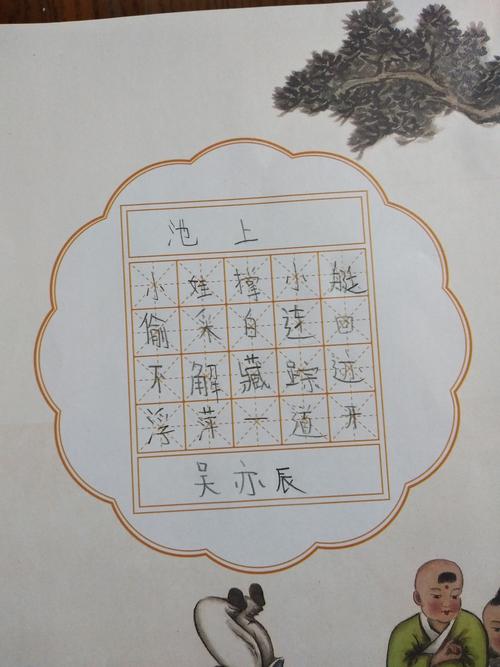 池上
小娃撑小艇
偷采白莲回
不解藏踪迹
浮萍一道开
吴亦辰